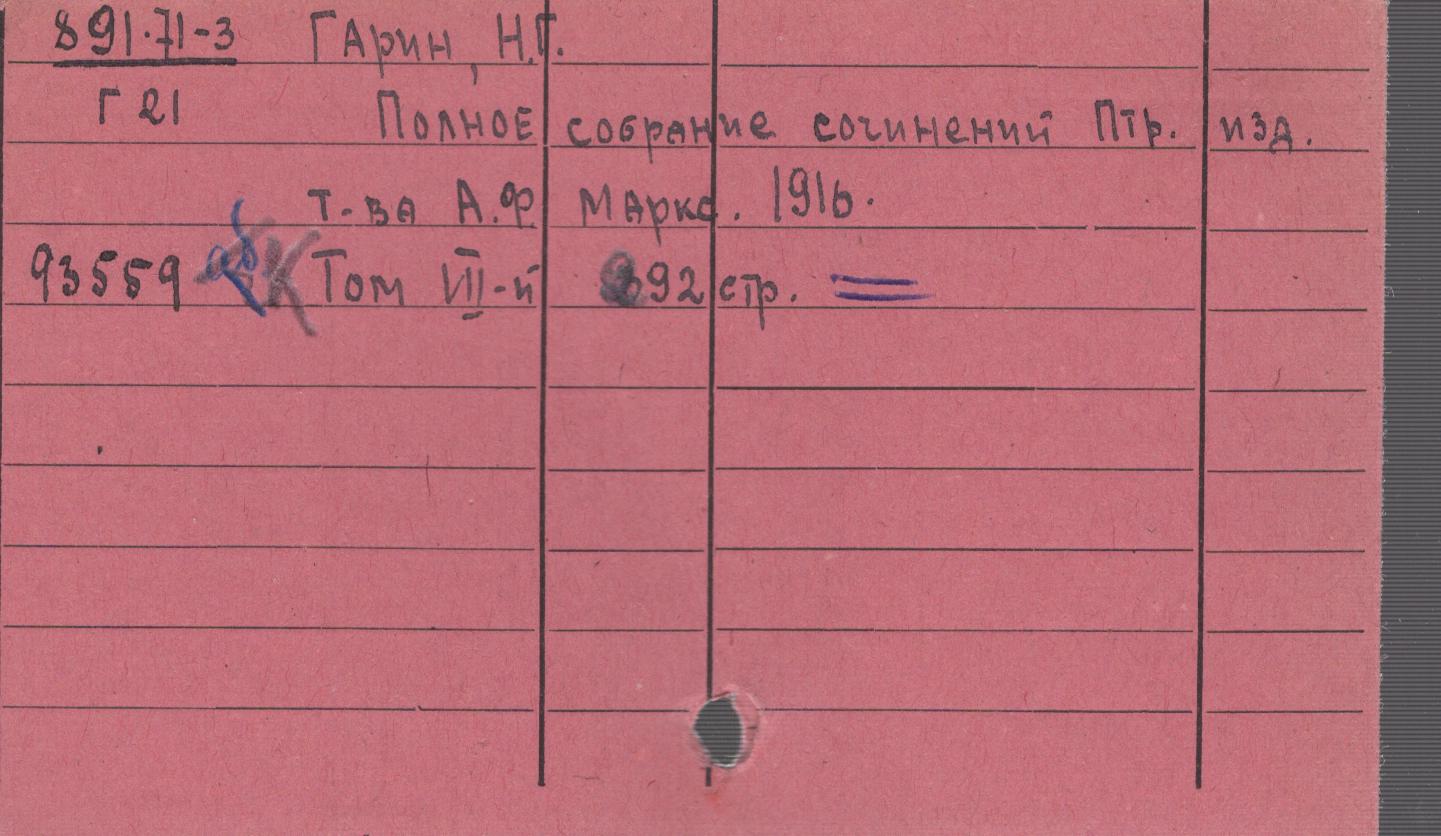 891.71-3 Гарин, Н.Г.
Г 21 Полное собрание сочинений Птр. изд.
т-ва А.Ф Маркс. 1916.
93559 К Том VIII-й 392 стр.